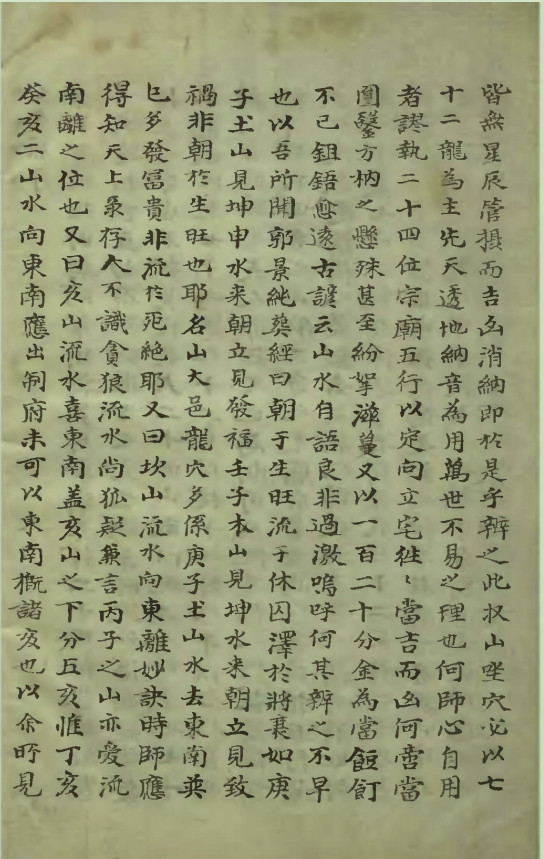 皆無星辰管摄而吉凶消納即於是乎辨之此収山坐穴必以七
十二龍為主先天透地納音為用萬世不易之理也何師心自用
者謬執二十四位宗廟五行以定向立宅徃〻當吉而凶何啻當
圓鑿方枘之懸殊甚至紛挐滋蔓又以一百二十分金為當餖飣
不已鉏鋙愈遠古諺云山水自語良非過激嗚呼何其辨之不早
也以吾所聞郭景純葬經曰朝于生旺流于休囚澤於將衰如庚
子土山見坤申水来朝立見發福壬子木山見坤水来朝立見致
禍非朝於生旺也耶名山大邑龍穴多係庚子土山水去東南葬
已多發富貴非流於死絕耶又曰坎山流水向東離妙訣時師應
得知天上象存人不識貪狼流水尚狐疑兼言丙子之山亦愛流
南離之位也又曰亥山流水喜東南盖亥山之下分五亥惟丁亥
癸亥二山水向東南應出制府未可以東南概諸亥也以余所見